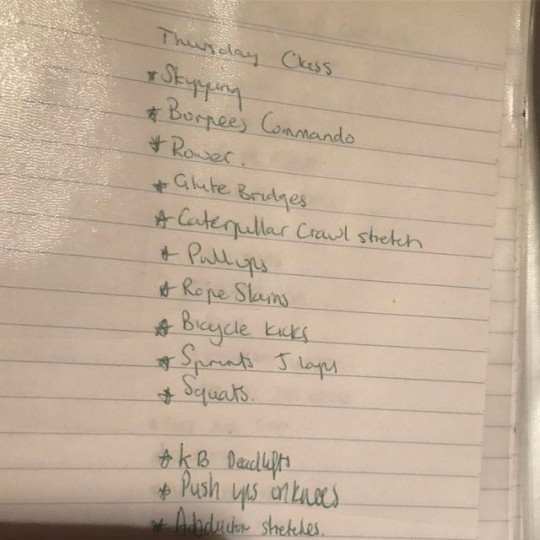 Thursday Class
* Skypping
* Borpees Commando
* Rower.
* Glute Bridges
* Caterpillar Crawl stretch
* Pull ups
* Rope Slams
* Bicycle kicks
* Sprints 5 laps
* Squats.
* KB Deadlifts
* Push ups on knees
* Adductor stretches.